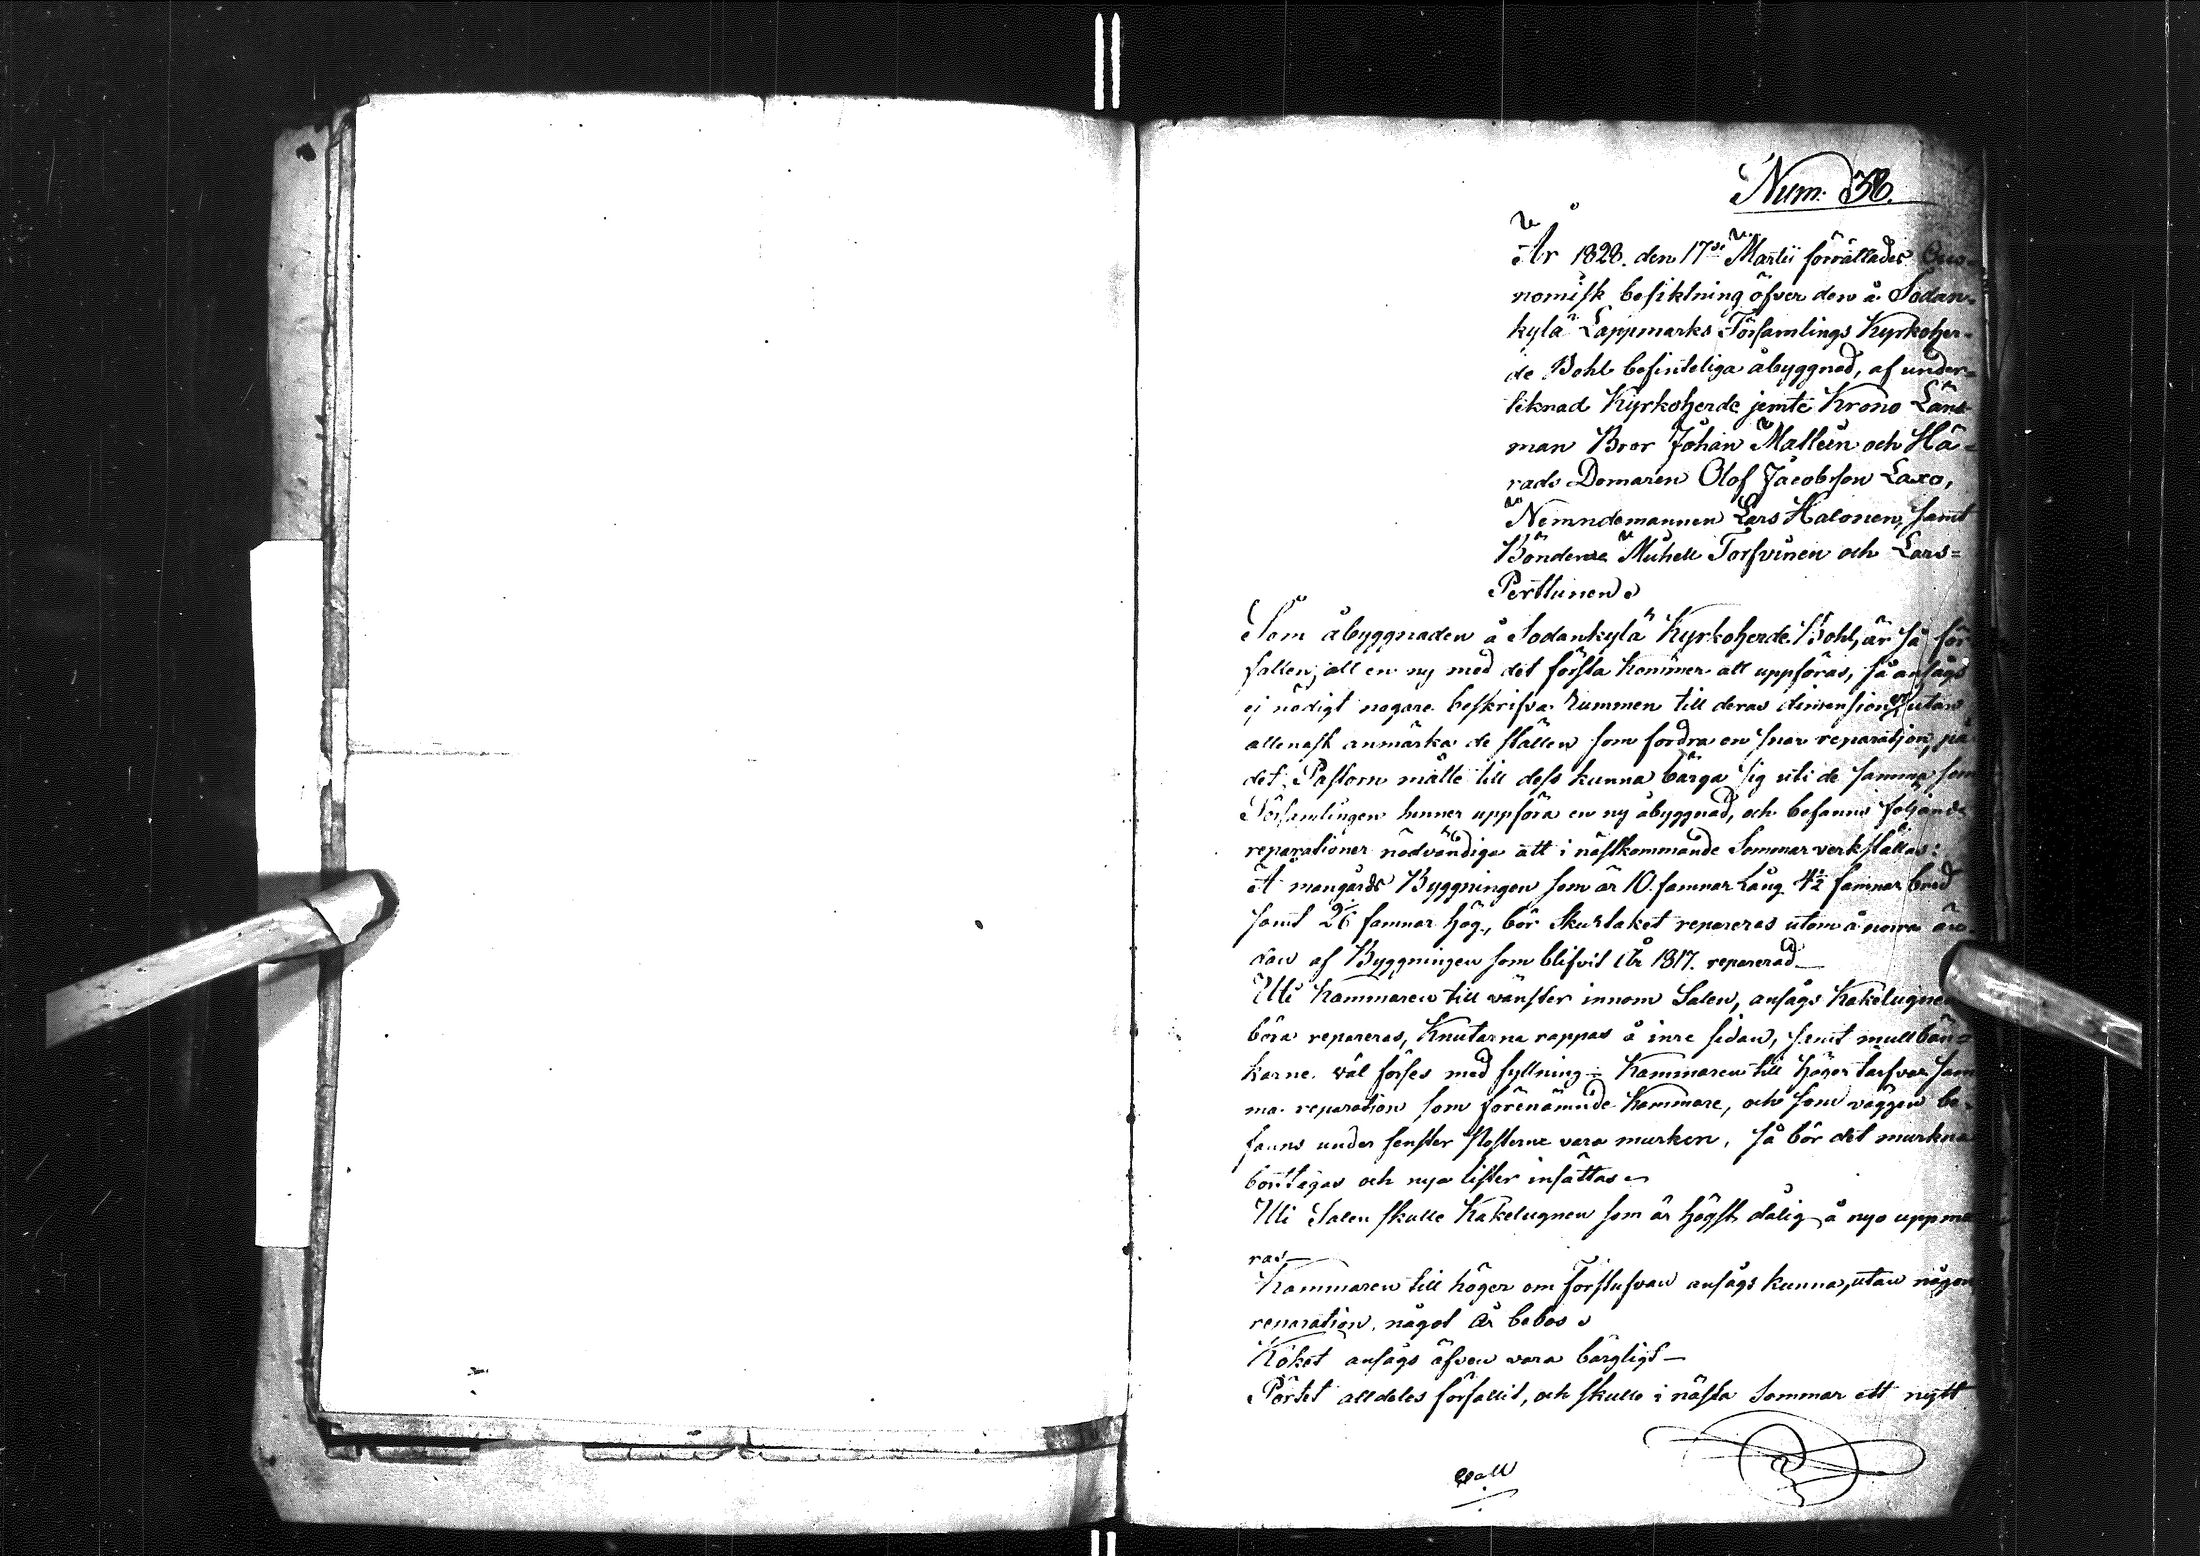 Num. 38.
År 1828. den 17de Martii förrättades Oeco-
nomisk besiktning öfver den å Sodan-
kylä Lappmarks Församlings Kyrkoher-
de Bohl befinteliga åbyggnad, af under-
teknad Kyrkoherde jemte Krono Läns-
man Bror Johan Malleen och Hä-
rads Domaren Olof Jacobsson Laxo,
Nemndemannen Lars Halonen, samt
Bönderne Michell Torfvinen och Lars-
Perttunen
Som åbyggnaden å Sodankylä Kyrkoherde Bohl, är så för
fallen, att en ny med det första kommer att uppföras, så ansågs
ej nödigt nogare beskrifva Rummen till deras dimensioner, utan
allenast anmärka de ställen som fordra en snar reparation, på
det Pastorn måtte till dess kunna bärga sig uti de samma som
Församlingen hinner uppföra en ny åbyggnad, och befanns följande
reparationer nödvändiga att i nästkommande Sommar verkställas:
Å mangårds Byggningen som är 10. famnar Lång 4½ famnar bred
samt 2 1/6 famnar hög, bör Skurtaket repareras utom å norra än-
dan af Byggningen som blifvit År 1817. reparerad
Uti Kammaren till vänster innom Salen, ansågs Kakelugnen
böra repareras, Knutarna rappas å inre sidan, samt mullbän-
karne väl förses med fyllning - Kammaren till höger tarfvar sam
ma reparation som förenämnde Kammare, och som väggen be-
fanns under fenster posterne vara murken, så bör det murkna
borttagas och nya lister insättas
Uti Salen skulle Kakelugnen som är högst dålig å nyo uppmu
ras
Kammaren till höger om Förstufvan ansågs kunna, utan någon
reparation, något År bebos
Köket ansågs äfven vara bärgligt
Pörtet alldeles förfallit, och skulle i nästa Sommar ett nytt